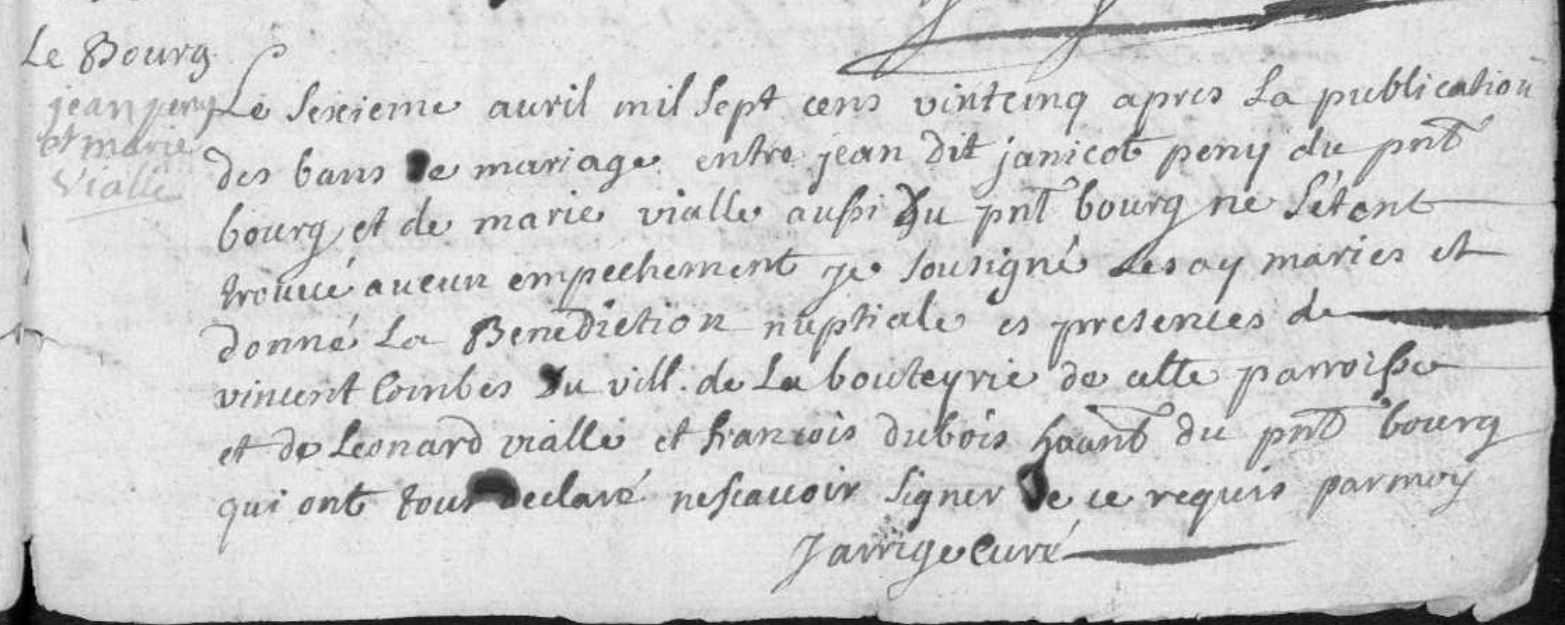 Le Bourg
jean peny
et marie
Vialle
Le sexieme auril mil sept cens vintcinq apres La publication
des bans de mariage entre jean dit janicot peny du pnt
bourg et de marie vialle aussi du pnt bourg ne s'étant
trouué aucun empechement je sousigné Les ay mariés et
donné La Benediction nuptiale es presences de
vincent Combes du vill. de La bouteyrie de cette parroisse
et de Leonard vialle et francois dubois haant du pnt bourg
qui ont tous declaré nescauoir signer de ce requis par moy
Jarrige Curé